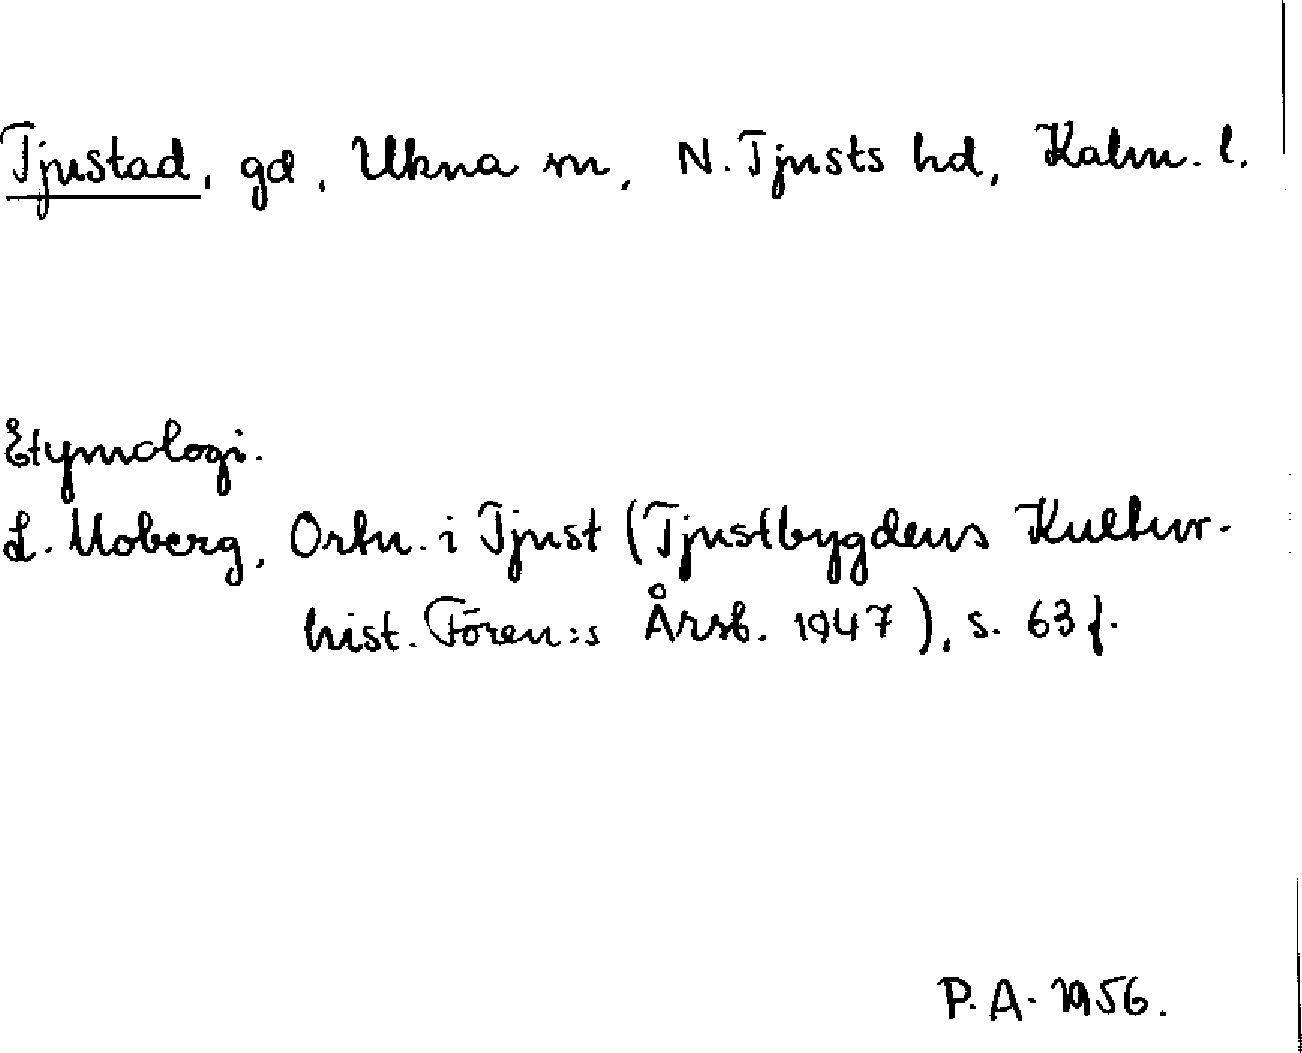 Tjustad, gd, Ukna sn, N. Tjusts hd, Kalm. l.
Etymologi.
L. Moberg, Ortn. i Tjust (Tjustbygdens Kultur-
hist. Fören:s Årsb. 1947), s. 63 f.
P. A. 1956.